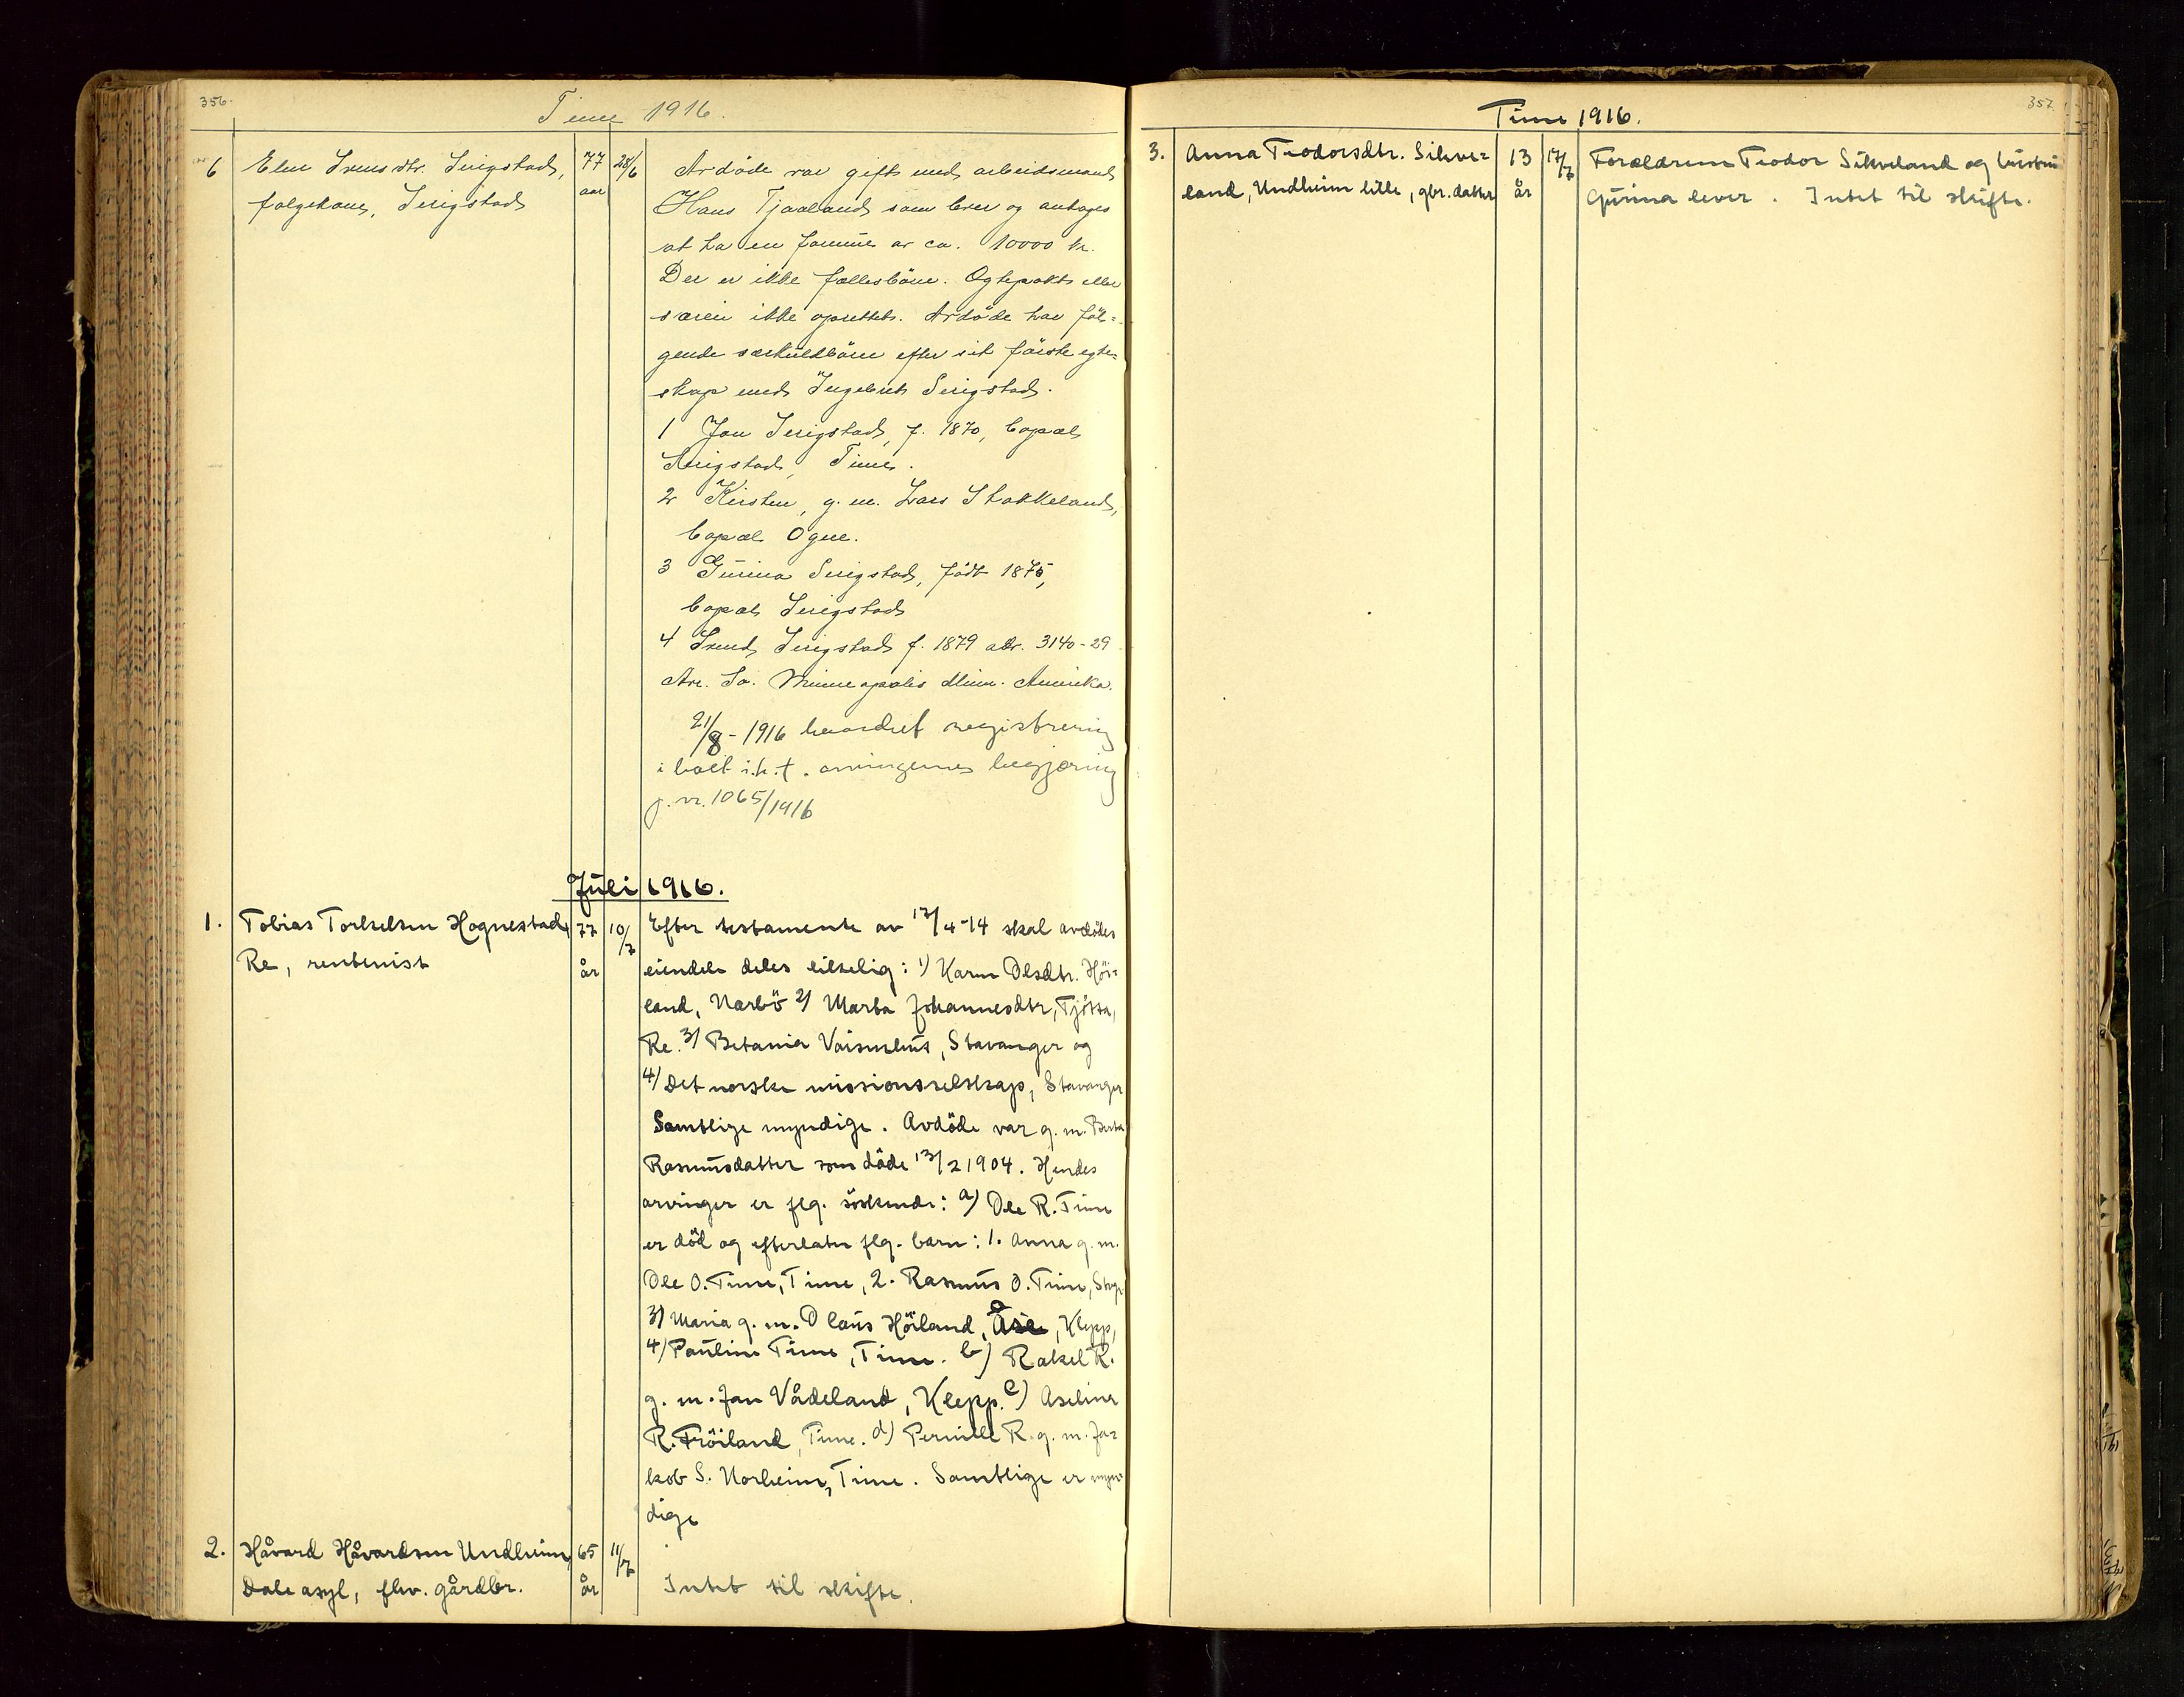 356.
Time 1916.
6 Elen Svensdtr. Serigstad, 77 28/6 Avdöde var gift med arbeidsmand
folgekone, Serigstad aar Hans Tjaaland som lever og antages
at ha en formue av ca. 10000 kr.
Der er ikke fællesbörn. Egtepakt eller
særeie ikke oprettet. Avdöde har föl-
gende særkuldbörn efter sit förste egte-
skap med Ingebret Serigstad.
1 Jon Serigstad, f. 1870, bopæl
Serigstad, Time.
2 Kirsten, g. m. Lars Stokkeland,
bopæl Ogne.
3 Gurina Serigstad, född 1875,
bopæl Serigstad
4 Svend Serigstad f. 1879 adr. 3140-29
Ave. So. Minneapolis Minn. Amerika.
21/8-1916 beordret registrering
i boet i.h.t. arvingernes begjæring
j. nr. 1065/1916
Juli 1916.
1. Tobias Torkelsen Hognestad, 77 10/7 Efter testamente av 17/4-14 skal avdödes
Re, rentenist år eiendele deles likelig: 1) Karen Olsdtr. Höi-
land, Nærbö 2) Marta Johannesdtr, Tjötta,
Re. 3) Betania Vaisenhus, Stavanger og
4) Det norske missionsselskap, Stavanger
Samtlige myndige. Avdöde var g. m. Berta
Rasmusdatter som döde 13/2 1904. Hendes
arvinger er flg. söskende: a) Ole R. Time
er död og efterlater flg. barn: 1. Anna g. m.
Ole O. Time, Time, 2. Rasmus O. Time,
3) Maria g. m. Olaus Höiland, Åse, Klepp,
4) Pauline Time, Time. b) Rakel R.
g. m. Jan Vådeland, Klepp. c) Aselina
R. Fröiland, Time. d) Pernille R. g. m. Ja-
kob S. Norheim, Time. Samtlige er myn-
dige
2. Håvard Håvardsen Undheim, 65 11/7
Dale asyl, fhv. gårdbr. år Intet til skifte.
357.
Time 1916.
3. Anna Teodorsdtr. Sikve- 13 17/7 Forældrene Teodor Sikveland og hustru
land, Undheim lille, gbr. datter år Gurina lever. Intet til skifte.